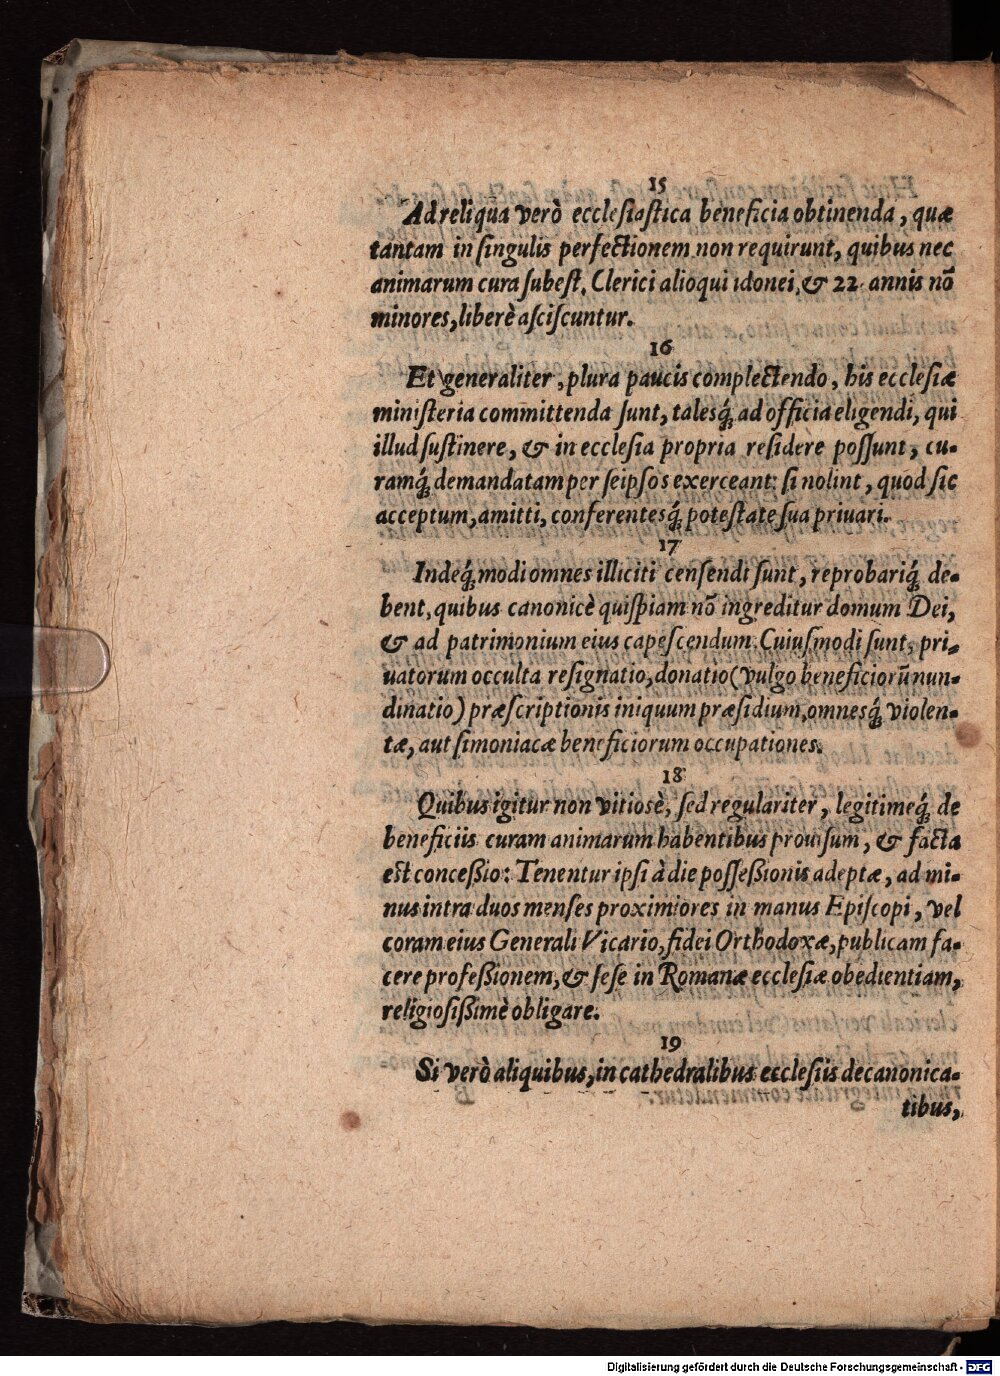 15
Ad reliqua verò ecclesiastica beneficia obtinenda, quæ
tantam in singulis perfectionem non requirunt, quibus nec
animarum cura subest, Clerici alioqui idonei, & 22. annis nõ
minores, liberè asciscuntur.
16
Et generaliter, plura paucis complectendo, his ecclesiæ
ministeria committenda sunt, talesq́; ad officia eligendi, qui
illud sustinere, & in ecclesia propria residere possunt, cu-
ramq́; demandatam per seipsos exerceant: si nolint, quod sic
acceptum, amitti, conferentesq́; potestate sua priuari.
17
Indeq́; modi omnes illiciti censendi sunt, reprobariq́; de-
bent, quibus canonicè quispiam nõ ingreditur domum Dei,
& ad patrimonium eius capescendum. Cuiusmodi sunt, pri-
uatorum occulta resignatio, donatio (vulgo beneficiorũ nun-
dinatio) præscriptionis iniquum præsidium, omnesq́; violen-
tæ, aut simoniacæ beneficiorum occupationes.
18
Quibus igitur non vitiosè, sed regulariter, legitimeq́; de
beneficiis curam animarum habentibus prouisum, & facta
est concessio: Tenentur ipsi à die possessionis adeptæ, ad mi-
nus intra duos menses proximiores in manus Episcopi, vel
coram eius Generali Vicario, fidei Orthodoxæ, publicam fa-
cere professionem, & sese in Romanæ ecclesiæ obedientiam,
religiosissimè obligare.
19
Si verò aliquibus, in cathedralibus ecclesiis decanonica-
tibus,
Digitalisierung gefördert durch die Deutsche Forschungsgemeinschaft - DFG